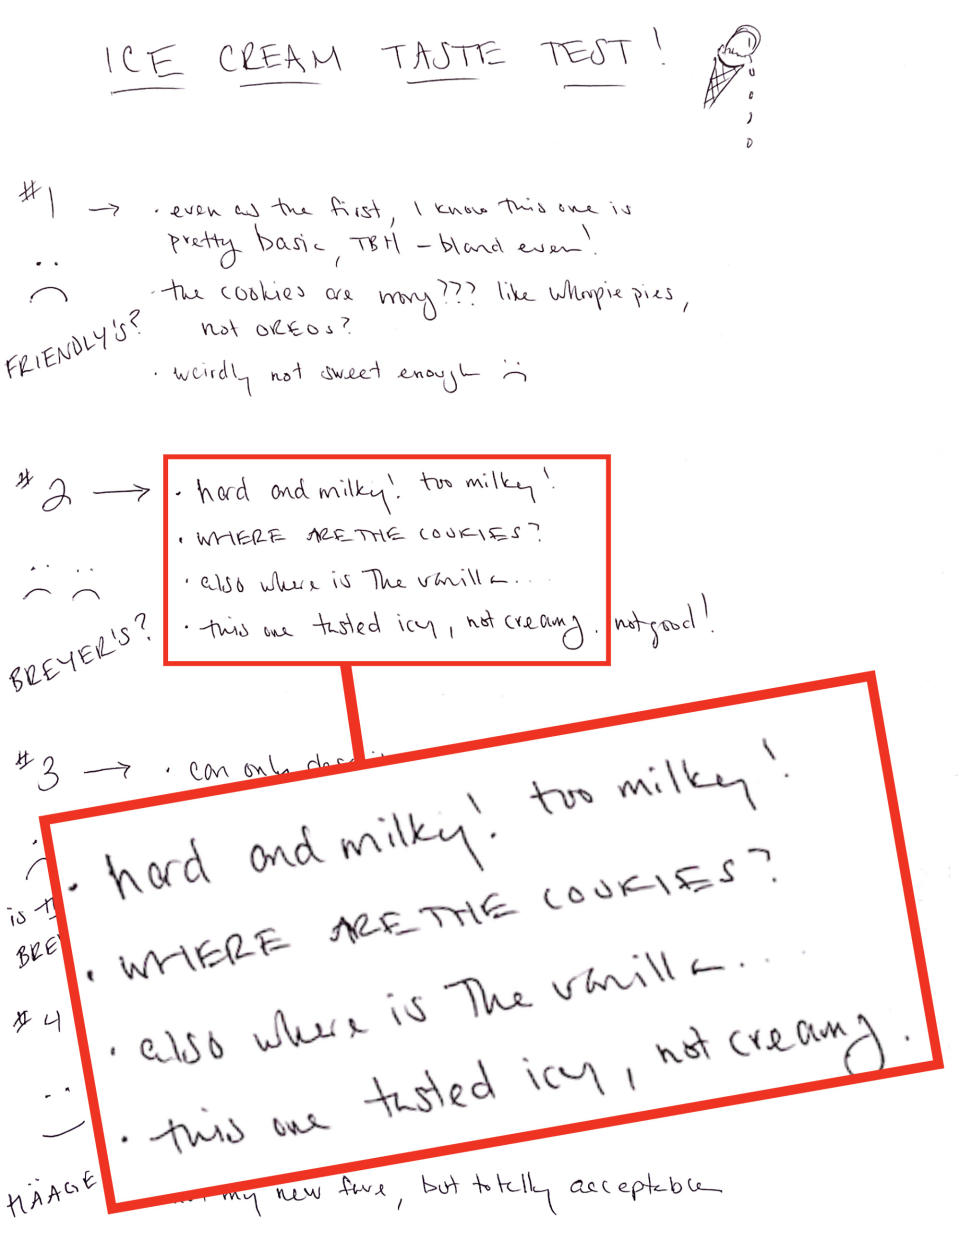 ICE CREAM TASTE TEST!
#1 → · even as the first, I know this one is
pretty basic, TBH – bland even!
· the cookies are wrong??? like whoopie pies,
not OREOS?
FRIENDLY'S?
· weirdly not sweet enough :(
#2 → · hard and milky! too milky!
· WHERE ARE THE COOKIES?
· also where is The vanilla...
· this one tasted icy, not creamy. not good!
BREYER'S?
#3 → · can only
· hard and milky! too milky!
· WHERE ARE THE COOKIES?
· also where is The vanilla...
· this one tasted icy, not creamy.
is
BREY
#4
HÄAGE
my new fave, but totally acceptable